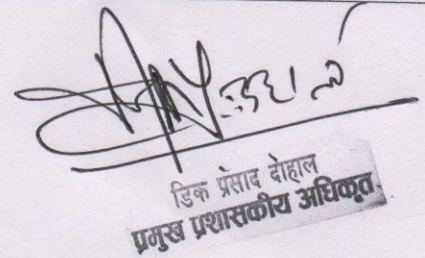 डिक प्रसाद दाेहाल
प्रमुख प्रशासकीय अधिकृत